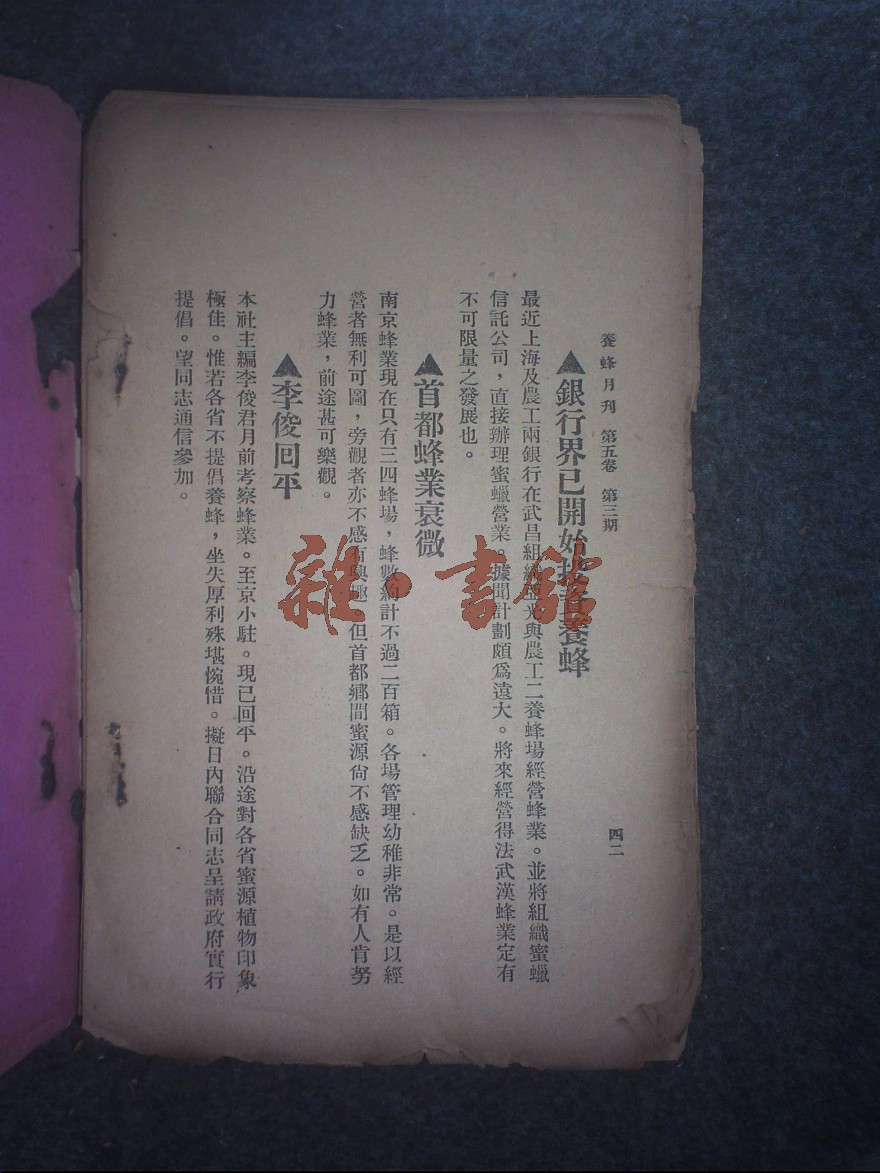 養蜂月刊 第五卷 第三期 四二
▲銀行界已開始投資養蜂
最近上海及農工兩銀行在武昌組織光與農工二養蜂場經營蜂業。並將組織蜜蠟
信託公司，直接辦理蜜蠟營業。據聞計劃頗爲遠大。將來經營得法武漢蜂業定有
不可限量之發展也。
▲首都蜂業衰微
南京蜂業現在只有三四蜂場，蜂數約計不過二百箱。各場管理幼稚非常。是以經
營者無利可圖，旁觀者亦不感有興趣。但首都鄉間蜜源尙不感缺乏。如有人肯努
力蜂業，前途甚可樂觀。
▲李俊回平
本社主編李俊君月前考察蜂業。至京小駐。現已回平。沿途對各省蜜源植物印象
極佳。惟若各省不提倡養蜂，坐失厚利殊堪惋惜。擬日內聯合同志呈請政府實行
提倡。望同志通信參加。
雜·書館